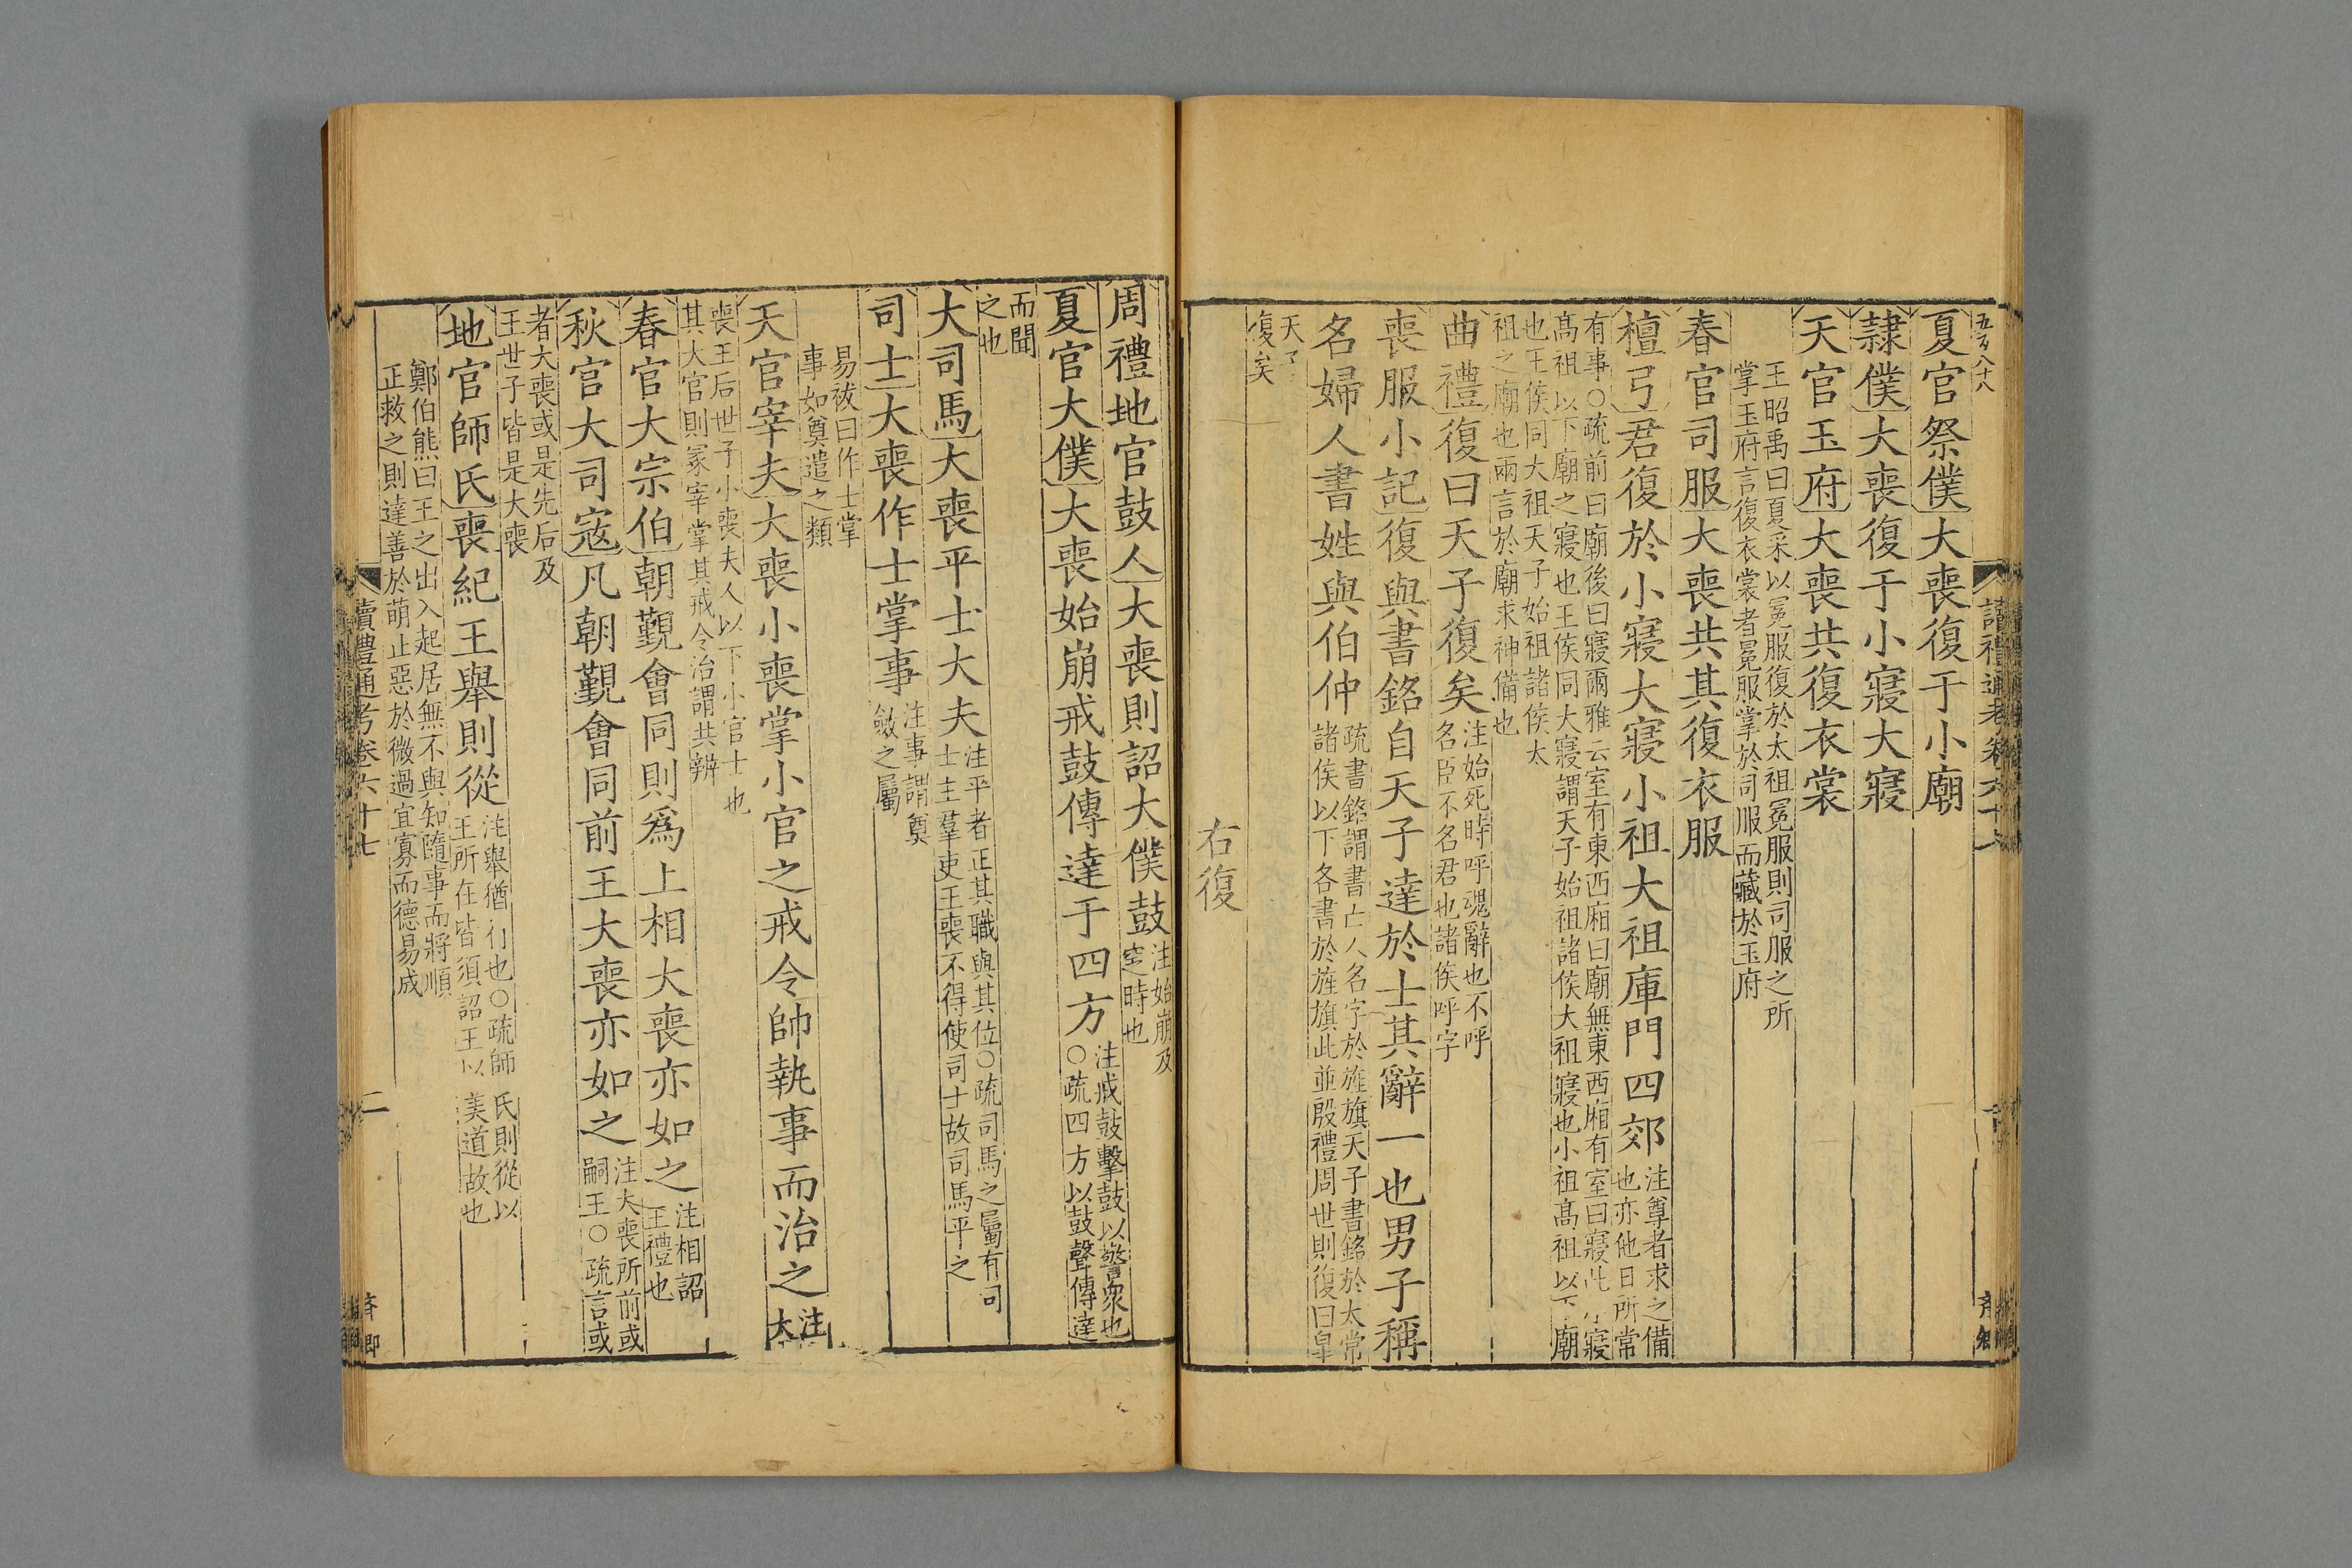 五百八十八
讀禮通考卷六十七
夏官祭僕大喪復于小廟
隷僕大喪復于小寢大寢
天官玉府大喪共復衣裳
王昭禹曰夏采以冕服復於太祖冕服則司服之所
掌玉府言復衣裳者冕服掌於司服而藏於玉府
春官司服大喪共其復衣服
檀弓君復於小寢大寢小祖大祖庫門四郊注尊者求之備
也亦他日所常
有事○疏前曰廟後曰寢爾雅云室有東西廂曰廟無東西廂有室曰寢此小寢
髙祖以下廟之寢也王侯同大寢謂天子始祖諸侯大祖寢也小祖髙祖以下廟
也王侯同大祖天子始祖諸侯太
祖之廟也兩言於廟求神備也
曲禮復曰天子復矣注始死時呼魂辭也不呼
名臣不名君也諸侯呼字
喪服小記復與書銘自天子達於士其辭一也男子稱
名婦人書姓與伯仲疏書銘謂書亡人名字於旌旗天子書銘於太常
諸侯以下各書於旌旗此並殷禮周世則復曰皐
天子
復矣
右復
周禮地官鼓人大喪則詔大僕鼓注始崩及
窆時也
夏官大僕大喪始崩戒鼓傳達于四方注戒鼓擊鼓以警衆也
○疏四方以鼓聲傳達
而聞
之也
大司馬大喪平士大夫注平者正其職與其位○疏司馬之屬有司
士主羣吏王喪不得使司士故司馬平之
司士大喪作士掌事注事謂奠
斂之屬
易祓曰作士掌
事如奠遣之類
天官宰夫大喪小喪掌小官之戒令帥執事而治之注
大
喪王后世子小喪夫人以下小官士也
其大官則冢宰掌其戒令治謂共辨
春官大宗伯朝覲會同則爲上相大喪亦如之注相詔
王禮也
秋官大司寇凡朝覲會同前王大喪亦如之注大喪所前或
嗣王○疏言或
者大喪或是先后及
王世子皆是大喪
地官師氏喪紀王舉則從注舉猶行也○疏師氏則從以
王所在皆須詔王以美道故也
鄭伯熊曰王之出入起居無不與知隨事而將順
正救之則達善於萌止惡於微過宜寡而德易成
讀禮通考卷六十七
二